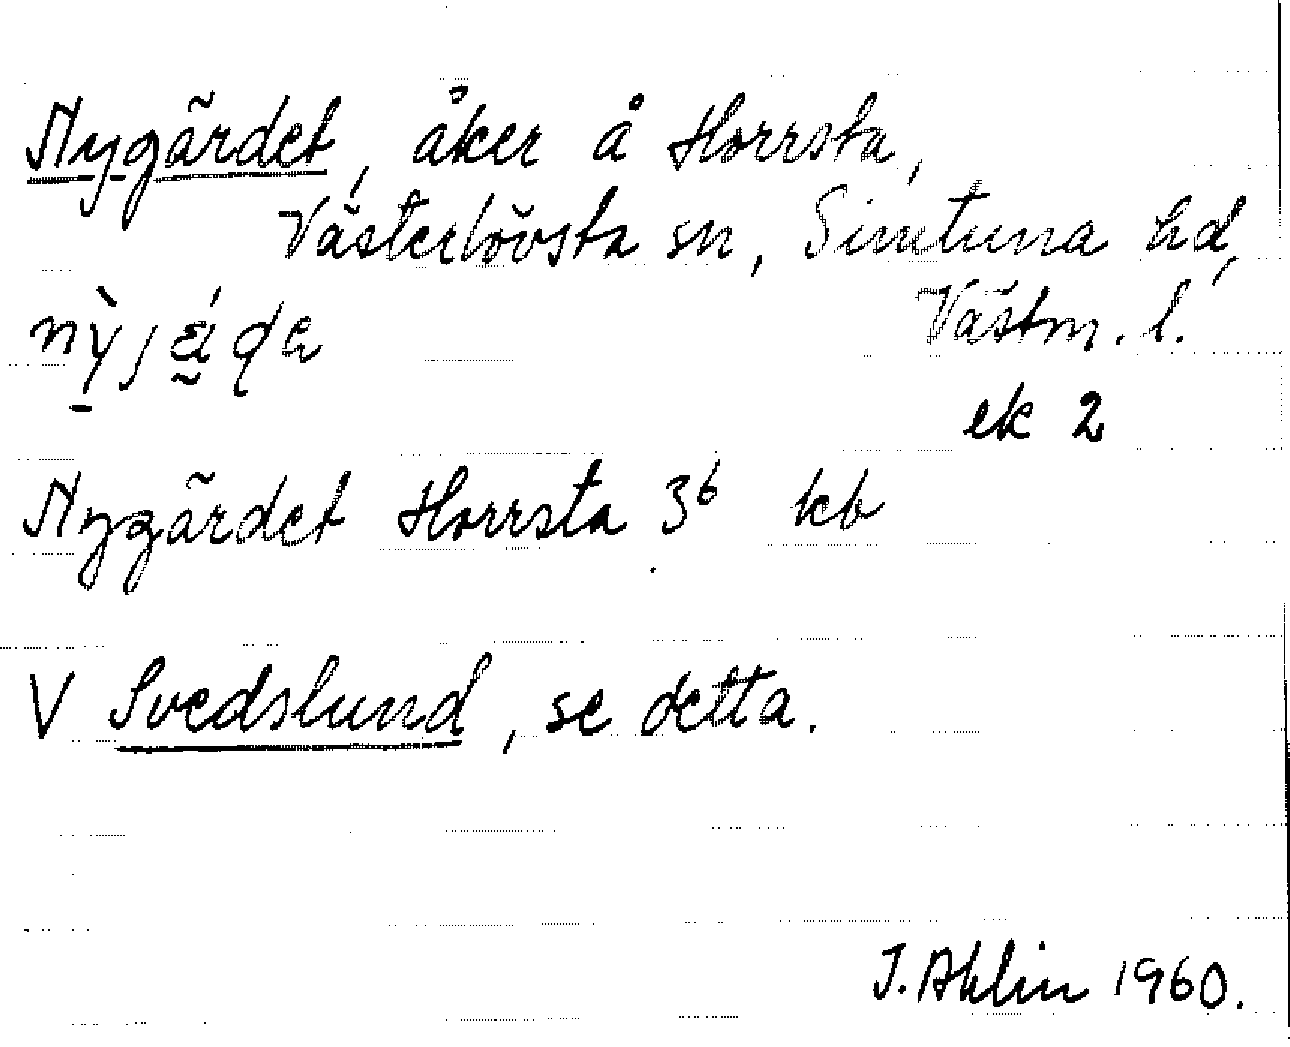 Nygärdet, åker å Horrsta,
Västerlövsta sn, Simtuna hd,
Västm. l.
ek 2
Nygärdet Horrsta 3⁶ kb
V Svedslund, se detta.
J. Ahlin 1960.